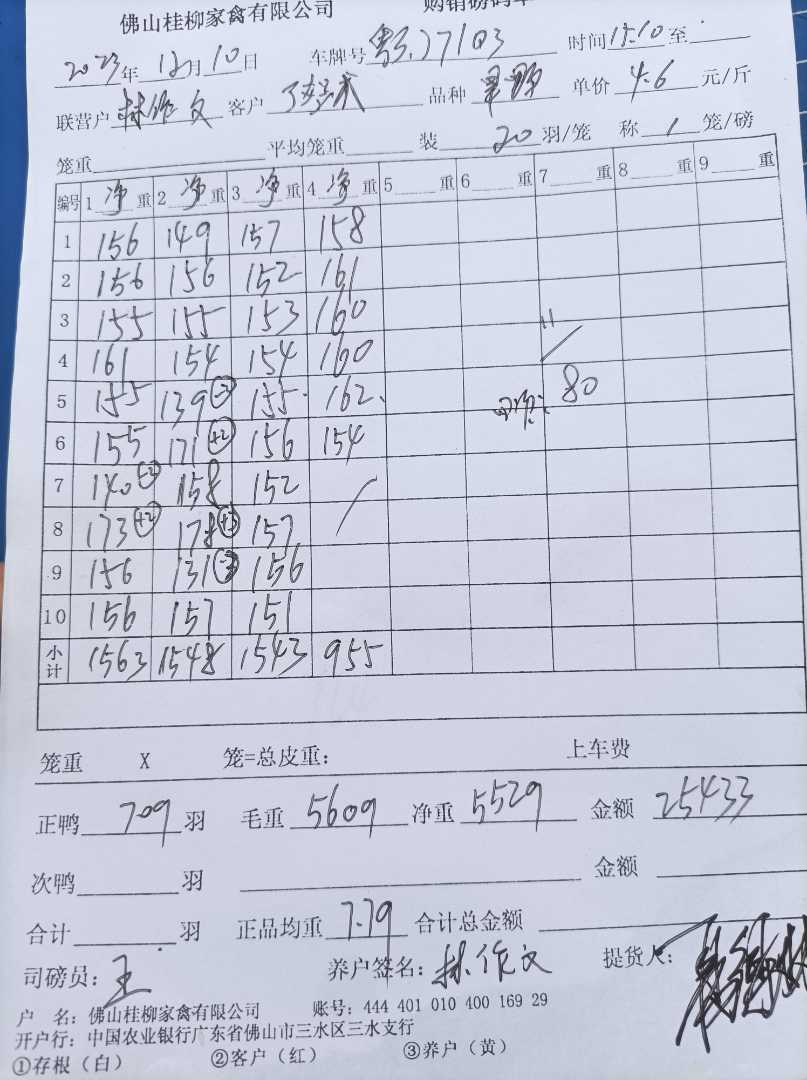 佛山桂柳家禽有限公司 购销磅码单
2023年12月10日 车牌号 粤J.27103 时间 15.10 至
联营户 林作文 客户 品种 单价 4.6 元/斤
笼重 平均笼重 装 20 羽/笼 称 1 笼/磅
编号 1 净 重 2 净 重 3 净 重 4 净 重 5 重 6 重 7 重 8 重 9 重
1 156 149 157 158
2 156 156 152 161
3 155 155 153 160
4 161 154 154 160
5 155 139 -2 155 162
80
6 155 171 +2 156 154
7 140 -2 158 152
8 173 +2 178 +3 157
9 156 131 -3 156
10 156 157 151
小计 1563 1548 1543 955
笼重 X 笼=总皮重: 上车费
正鸭 709 羽 毛重 5609 净重 5529 金额 25433
次鸭 羽 金额
合计 羽 正品均重 7.79 合计总金额
司磅员: 王 养户签名: 林作文 提货人:
户 名: 佛山桂柳家禽有限公司 账号: 444 401 010 400 169 29
开户行: 中国农业银行广东省佛山市三水区三水支行
①存根（白） ②客户（红） ③养户（黄）